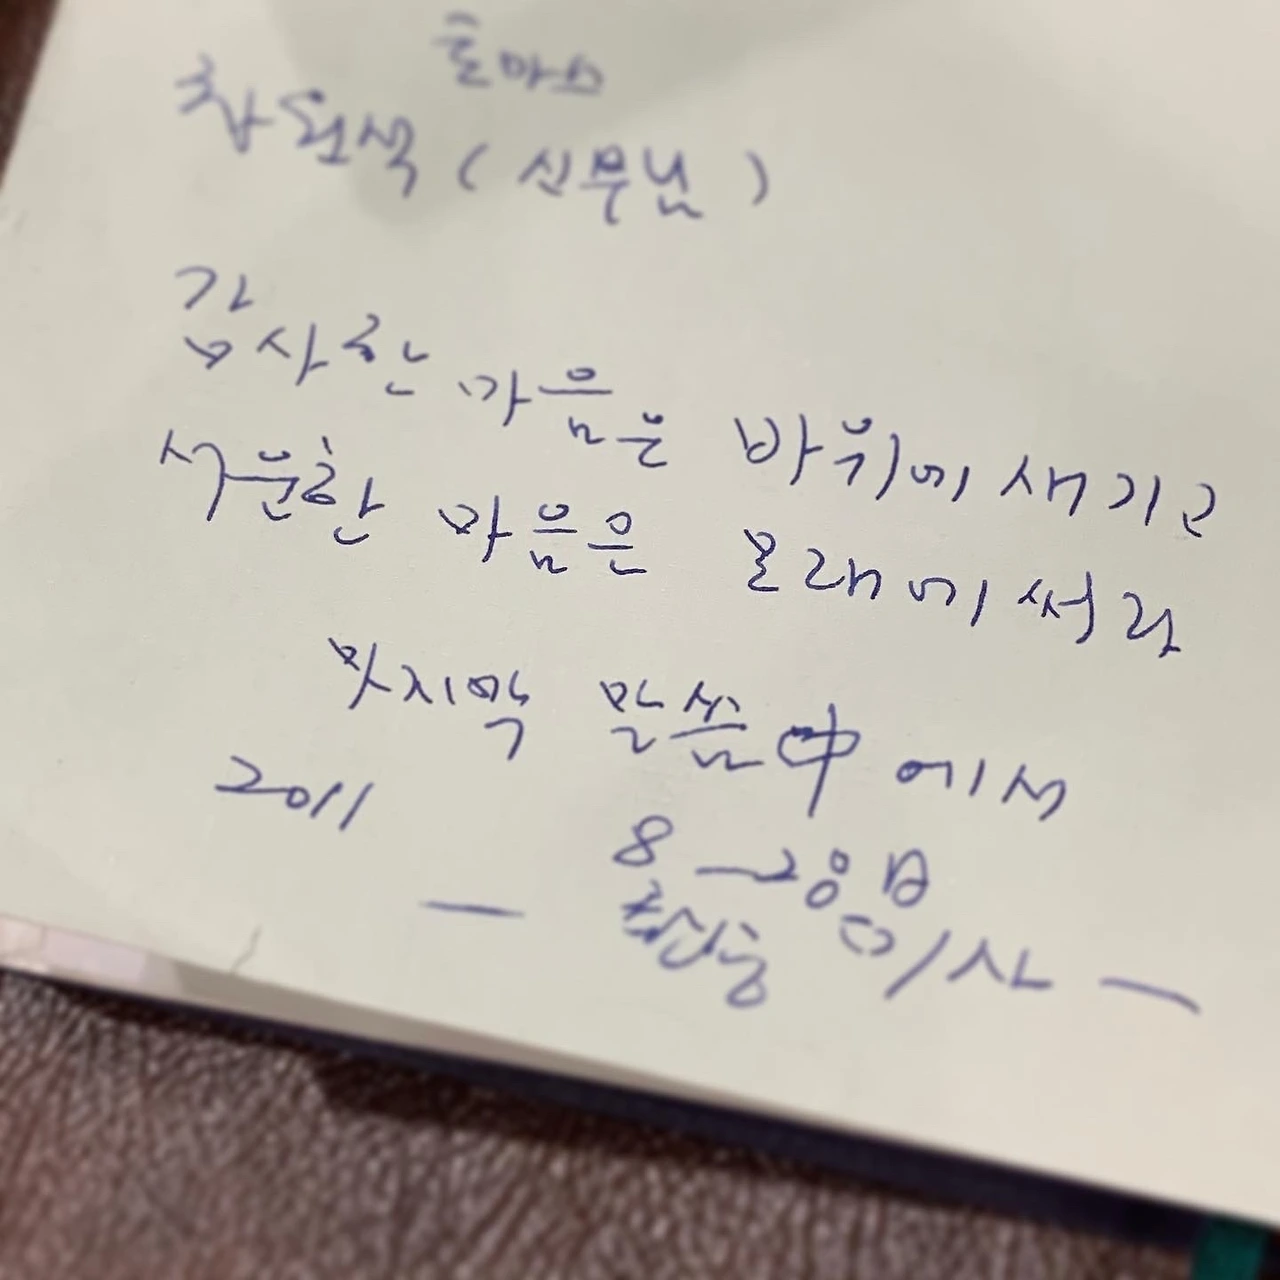 토마스
차원석 (신부님)
감사한 마음은 바위에 새기고
서운한 마음은 모래에 써라
마지막 말씀中에서
2011
8
미사